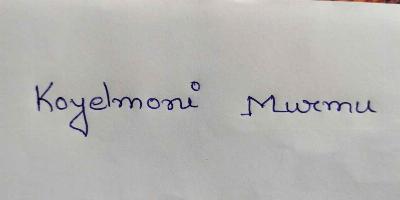 Koyelmoni Murmu